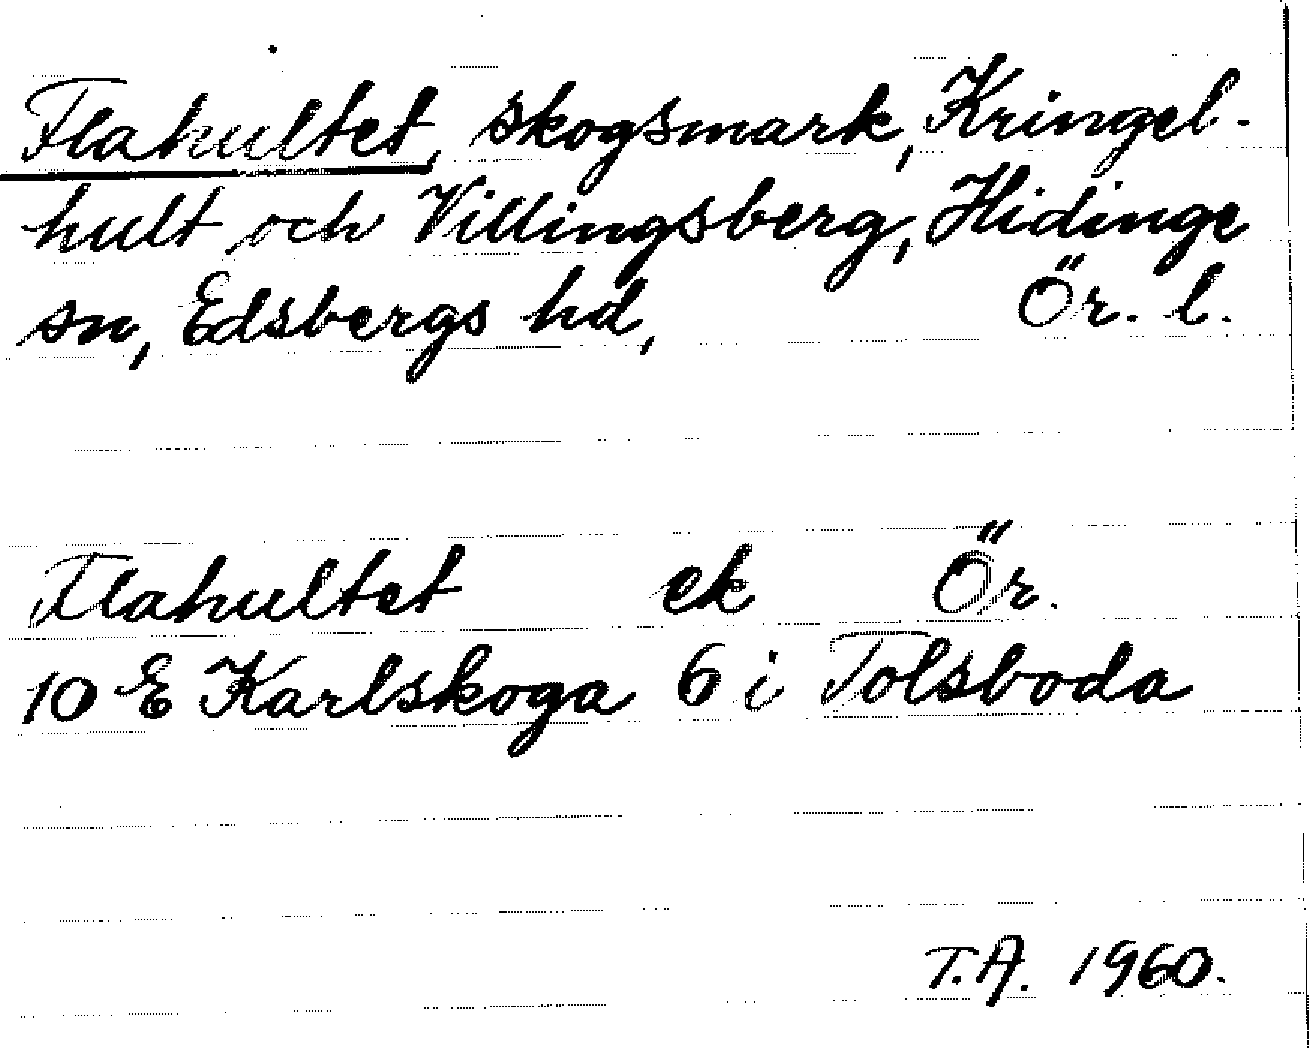 Flahultet, skogsmark, Kringel-
hult och Villingsberg, Hidinge
sn, Edsbergs hd, Ör. l.
Flahultet ek Ör.
10 E Karlskoga 6 i Tolsboda
T.A. 1960.